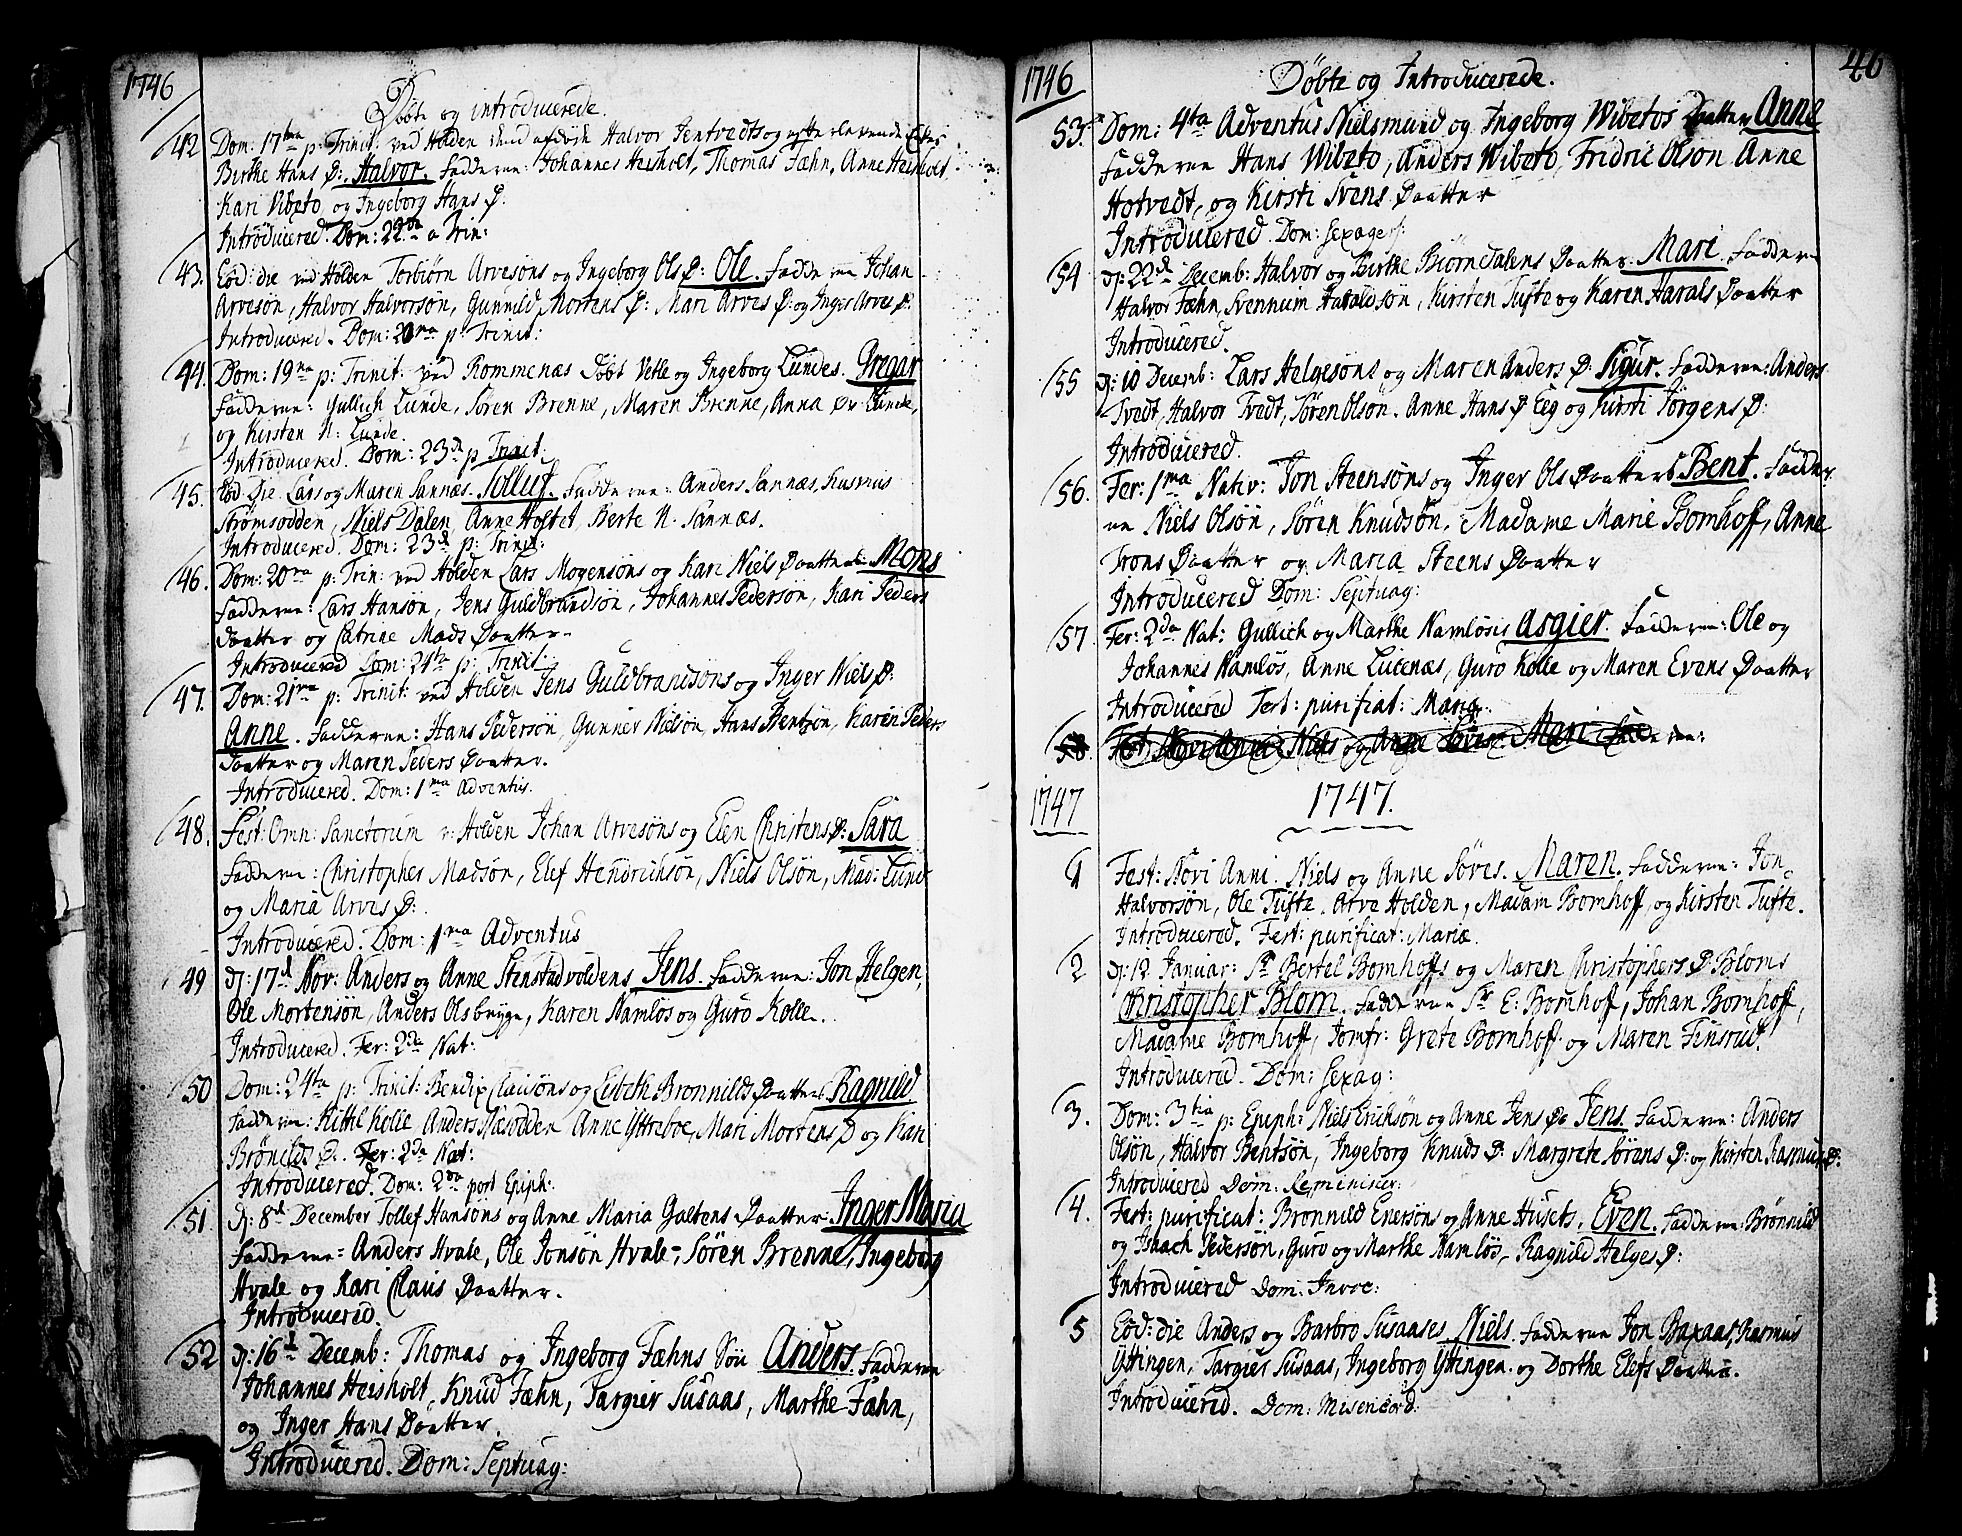 1746
Döbte og introducerede.
42 Dom: 17tma p: Trinit: ved Holden Halvor Jentvedts og
Birthe Hans D: Halvor. Fadderne: Johannes Heisholt, Thomas Fæhn, Anne Heisholt,
Kari Vibeto, og Ingeborg Hans D:
Introducered. Dom: 22da a Trin:
43. Eod: die ved Holden Torbiörn Arvesöns og Ingeborg Ols D: Ole. Fadderne Johan
Arvesön, Halvor Halvorsön, Gunnild Mortens D: Mari Arves D: og Inger Arves D:
Introducered. Dom: 20ma p: Trinit:
44. Dom: 19na p: Trinit: ved Rommenæs Döbt Vetle og Ingeborg Lundes. Gregar
Fadderne: Gullich Lunde, Sören Brenne, Maren Brenne, Anna Lunde,
og Kirsten N: Lunde.
Introducered. Dom: 23d p Trinit:
45. Eod Die Lars og Maren Sannæs. Tolluf. Fadderne: Anders Sannæs, Rasmus
Strömsodden, Niels Dalen, Anne Hoftet, Berte N. Sannæs.
Introducered. Dom: 23d p: Trinit:
46. Dom: 20ma p: Trin: ved Holden Lars Mogensöns og Kari Niels Daatters Mons
Fadderne: Lars Hansön, Jens Guldbrandsön, Johannes Pedersön, Kari Peders
Daatter og Catrine Mads Daatter.
Introducered Dom: 24ta p: Trinit:
47. Dom: 21ma p: Trinit: ved Holden Jens Guldbrandsöns og Inger Niels D:
Anne. Fadderne: Hans Pedersön, Gunner Nielsön, Hans Bentsön, Karen Peders
Daatter og Maren Peders Daatter.
Introducered. Dom: 1ma Adventus.
48. Fest: Omn: Sanctorum v: Holden Johan Arvesöns og Elen Christens D: Sara
Fadderne: Christopher Madsön, Elef Hendrichsön, Niels Olsön, Mad: Lund
og Maria Arves D:
Introducered. Dom: 1ma Adventus
49 D: 17d Nov: Anders og Anne Stenstadvoldens Jens. Fadderne: Jon Helgen,
Ole Mortensön, Anders Olsbrygge, Karen Namlös og Guro Kolle.
Introducered. Fer: 2da Nat:
50 Dom: 24ta p: Trinit: Bendix Clausöns og Lisbeth Brönnilds Daatters Ragnild
Fadderne: Kittil Kolle Anders Næsodden Anne Ytteboe, Mari Mortens D og Kari
Brönilds D. Fer: 2da Nat:
Introducered. Dom: 2da post Epiph:
51. D: 8d December Tollef Hansöns og Anne Maria Goltens Daatter: Inger Maria
Fadderne: Anders Hvale, Ole Jonsön Hvale, Sören Brenne, Ingeborg
Hvale og Kari Claus Daatter.
Introducered.
52 D: 16d Decemb: Thomas og Ingeborg Fæhns Sön Anders. Fadderne
Johannes Heisholt, Knud Fæhn, Targier Susaas, Marthe Fæhn,
og Inger Hans Daatter.
Introducered. Dom: Septuag:
1746 Döbte og Introducerede. 46
53. Dom: 4ta Adventus Nielsmund og Ingeborg Wibetos Daatter Anne
Fadderne Hans Wibeto, Anders Wibeto, Fridric Olson Anne
Hotvedt, og Kirsti Svens Daatter
Introducered. Dom: Sexages:
54 D: 22d Decemb: Halvor og Birthe Biörndalens Daatter. Mari. Fadderne
Halvor Fæhn, Svennum Haraldsön, Kirsten Tufte og Karen Harals Daatter
Introducered.
55 D: 10 Decemb: Lars Helgesöns og Maren Anders D: Sigur. Fadderne: Anders
Tvedt, Halvor Tvedt, Sören Olsön. Anne Hans D Eeg og Kirsti Jörgens D:
Introducered.
56. Fer: 1ma Nativ: Jon Steensöns og Inger Ols Daatters Bent. Fadder
ne Niels Olsön, Sören Knudsön. Madame Marie Bomhoff, Anne
Trons Daatter og Maria Steens Daatter
Introducered Dom: Septuag:
57. Fer: 2da Nat: Gullich og Marthe Namlösis Asgier. Fadderne: Ole og
Johannes Namlös, Anne Lucenæs, Guro Kolle og Maren Evens Daatter
Introducered Fest: purificat: Mariæ.
58. Fest: Novi Anni Niels og Anne Söves. Mari Fadderne:
1747 1747.
1 Fest: Novi Anni. Niels og Anne Söves. Maren. Fadderne: Jon
Halvorsön, Ole Tufte. Arve Holden, Madam Bomhoff, og Kirsten Tufte.
Introducered. Fest: purificat: Mariæ.
2 D: 12 Januar: Sr Bertel Bomhoffs og Maren Christophers D: Bloms
Christopher Blom. Fadderne Sr E: Bomhoff, Johan Bomhoff,
Madame Bomhoff, Jomfr: Grete Bomhoff og Maren Finsrud.
Introducered. Dom: Sexag:
3. Dom: 3tia p: Epiph: Niels Erichsön og Anne Jens Da Jens. Fadderne: Anders
Olsön, Halvor Bentsön, Ingeborg Knuds D: Margrete Sörens D: og Kirsten Rasmus D:
Introducered Dom: Reminiscer:
4. Fest: purificat: Brönnild Enersöns og Anne Husets. Even. Fadderne: Brönnild
og Isaach Pedersön, Guro og Marthe Namlös, Ragnild Helges D:
Introducered Dom: Invoc:
5 Eod: die Anders og Barbro Susaases Niels. Fadderne Jon Baxaas, Rasmus
Yttingen, Targier Susaas, Ingeborg Yttingen. og Dorthe Elefs Daatter.
Introducered. Dom: Misericord: